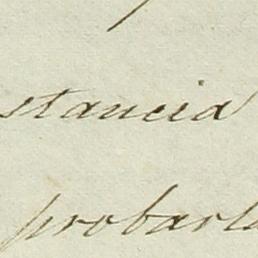 stancia
probarla